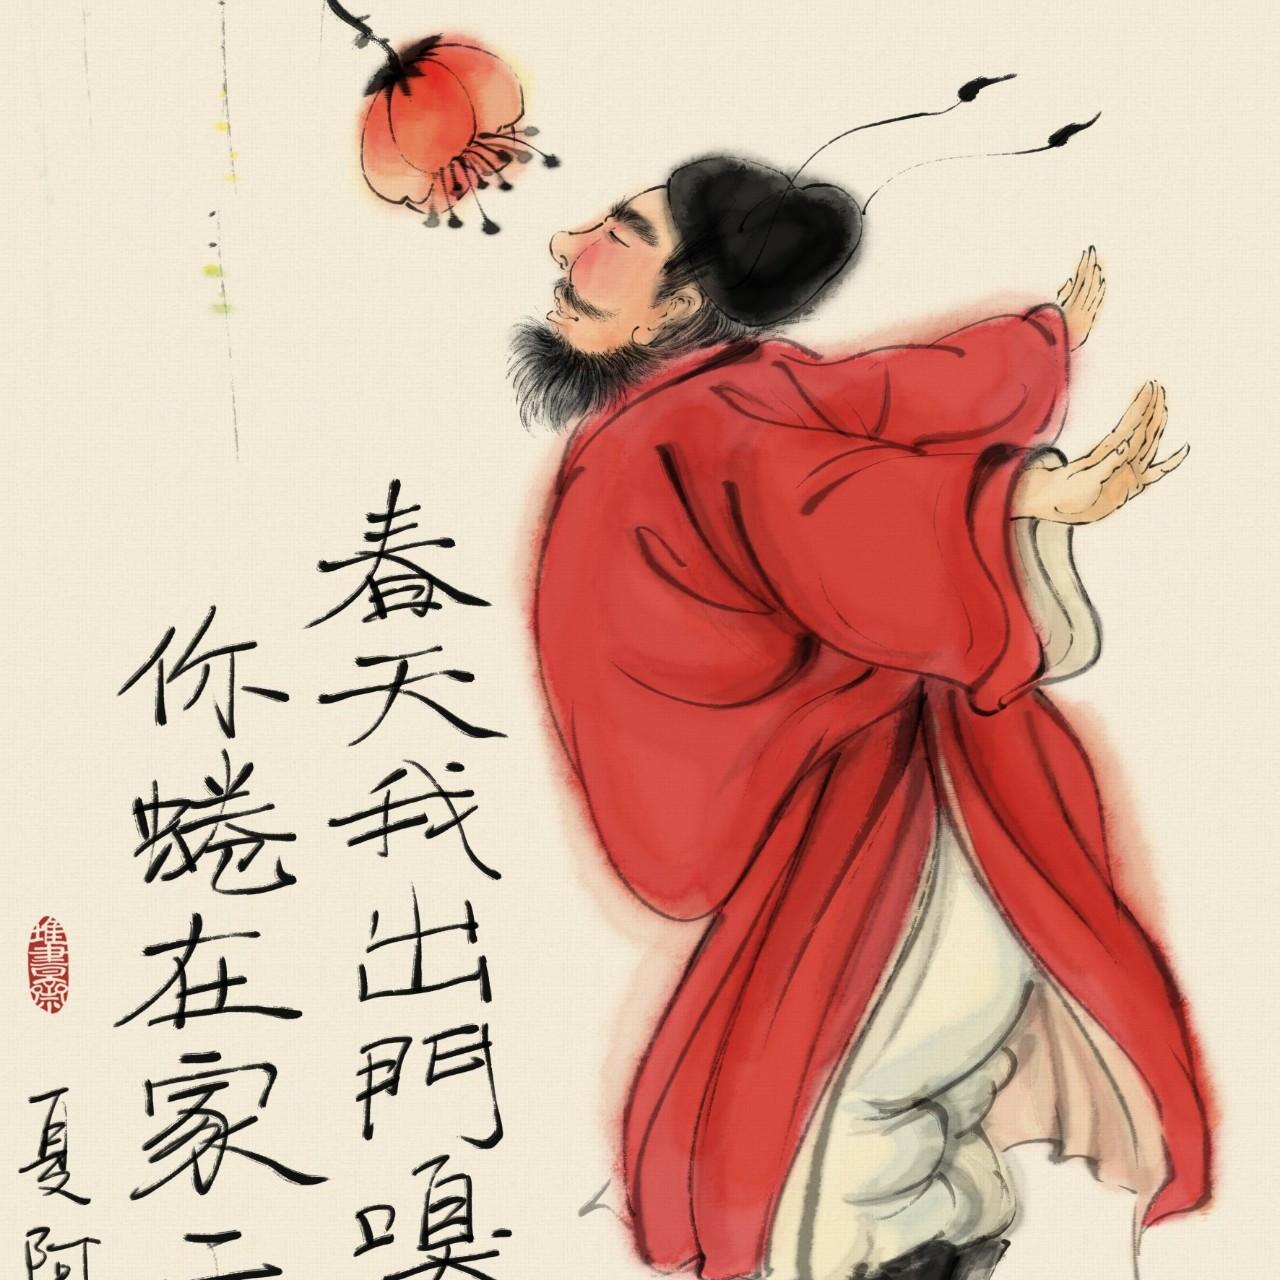 春天我出門嗅
你蜷在家
夏阿
堆書齋